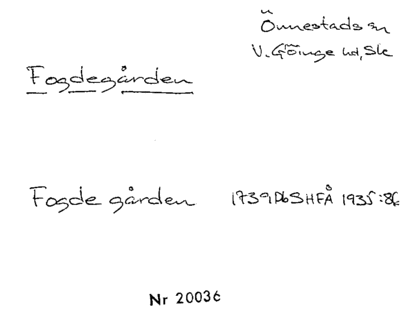 Önnestads sn
V. Göinge hd, Sk
Fogdegården
Fogde gården 1739 Db SHFÅ 1935:86
Nr 20036